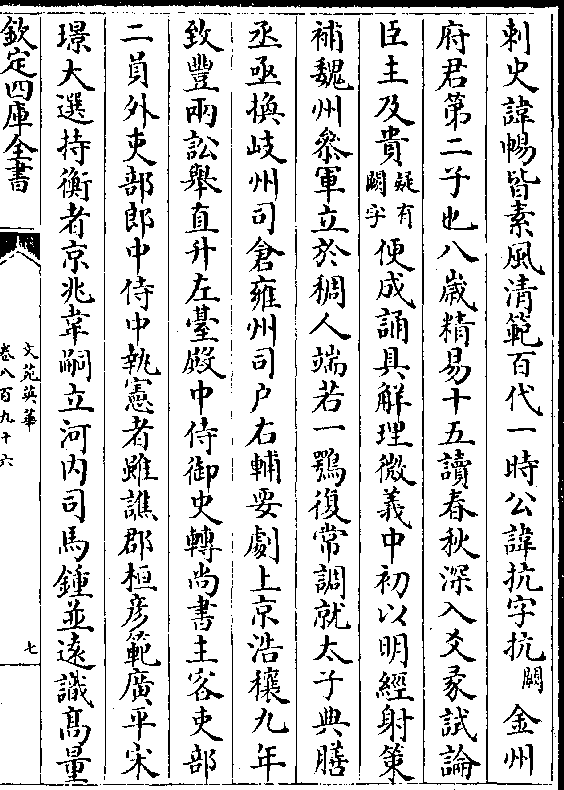 刺史諱暢皆素風清範百代一時公諱抗字抗闕金州
府君第二子也八嵗精易十五讀春秋深入爻彖試論
臣主及貴疑有闕字便成誦具解理微義中初以明經射策
補魏州叅軍立於稠人端若一鶚復常調就太子典膳
丞亟換岐州司倉雍州司户右輔要劇上京浩穰九年
致豐兩訟舉直升左臺殿中侍御史轉尚書主客吏部
二員外吏部郎中侍中執憲者雖譙郡桓彦範廣平宋
璟大選持衡者京兆韋嗣立河内司馬鍾並遠識髙量
欽定四庫全書
文苑英華
卷八百九十六
七